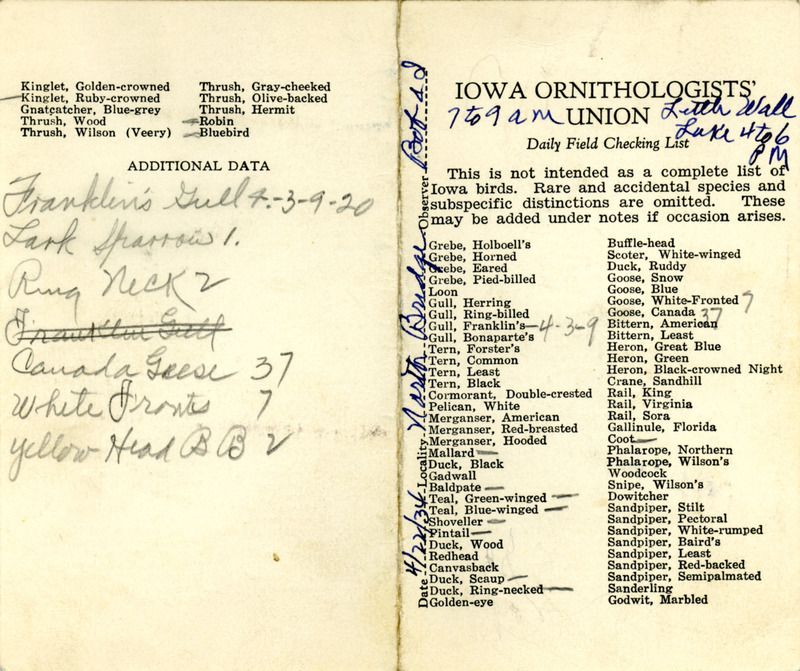 Kinglet, Golden-crowned
Kinglet, Ruby-crowned
Gnatcatcher, Blue-grey
Thrush, Wood
Thrush, Wilson (Veery)
Thrush, Gray-cheeked
Thrush, Olive-backed
Thrush, Hermit
Robin
Bluebird
ADDITIONAL DATA
Franklin's Gull 4-3-9-20
Lark Sparrow 1.
Ring Neck 2
Franklin Gull
Canada Geese 37
White Fronts 7
Yellow Head B B 2
Date 4/22/34 Locality North Bridge Observer
IOWA ORNITHOLOGISTS'
7 to 9 am UNION Little Wall
Lake 4 to 6
PM
Daily Field Checking List
This is not intended as a complete list of
Iowa birds. Rare and accidental species and
subspecific distinctions are omitted. These
may be added under notes if occasion arises.
Grebe, Holboell's
Grebe, Horned
Grebe, Eared
Grebe, Pied-billed
Loon
Gull, Herring
Gull, Ring-billed
Gull, Franklin's—4-3-9
Gull, Bonaparte's
Tern, Forster's
Tern, Common
Tern, Least
Tern, Black
Cormorant, Double-crested
Pelican, White
Merganser, American
Merganser, Red-breasted
Merganser, Hooded
Mallard —
Duck, Black
Gadwall
Baldpate —
Teal, Green-winged —
Teal, Blue-winged —
Shoveller —
Pintail —
Duck, Wood
Redhead
Canvasback
Duck, Scaup —
Duck, Ring-necked —
Golden-eye
Buffle-head
Scoter, White-winged
Duck, Ruddy
Goose, Snow
Goose, Blue
Goose, White-Fronted 7
Goose, Canada 37
Bittern, American
Bittern, Least
Heron, Great Blue
Heron, Green
Heron, Black-crowned Night
Crane, Sandhill
Rail, King
Rail, Virginia
Rail, Sora
Gallinule, Florida
Coot —
Phalarope, Northern
Phalarope, Wilson's
Woodcock
Snipe, Wilson's
Dowitcher
Sandpiper, Stilt
Sandpiper, Pectoral
Sandpiper, White-rumped
Sandpiper, Baird's
Sandpiper, Least
Sandpiper, Red-backed
Sandpiper, Semipalmated
Sanderling
Godwit, Marbled